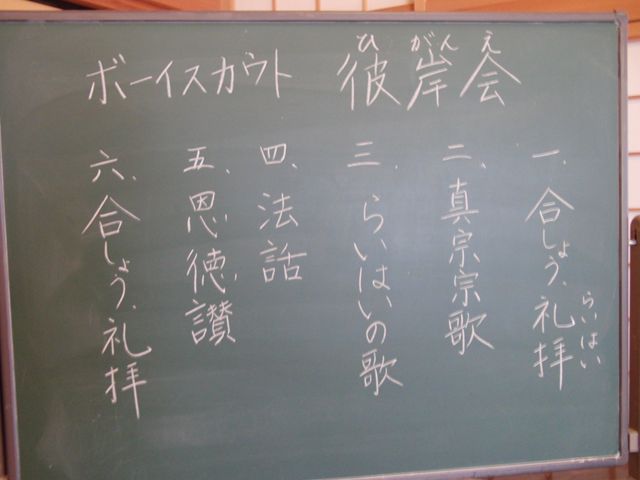 ボーイスカウト 彼岸会
ひがんえ
一、合しょう、礼拝
らいはい
二、真宗宗歌
三、らいはいの歌
四、法話
五、恩徳讃
六、合しょう、礼拝